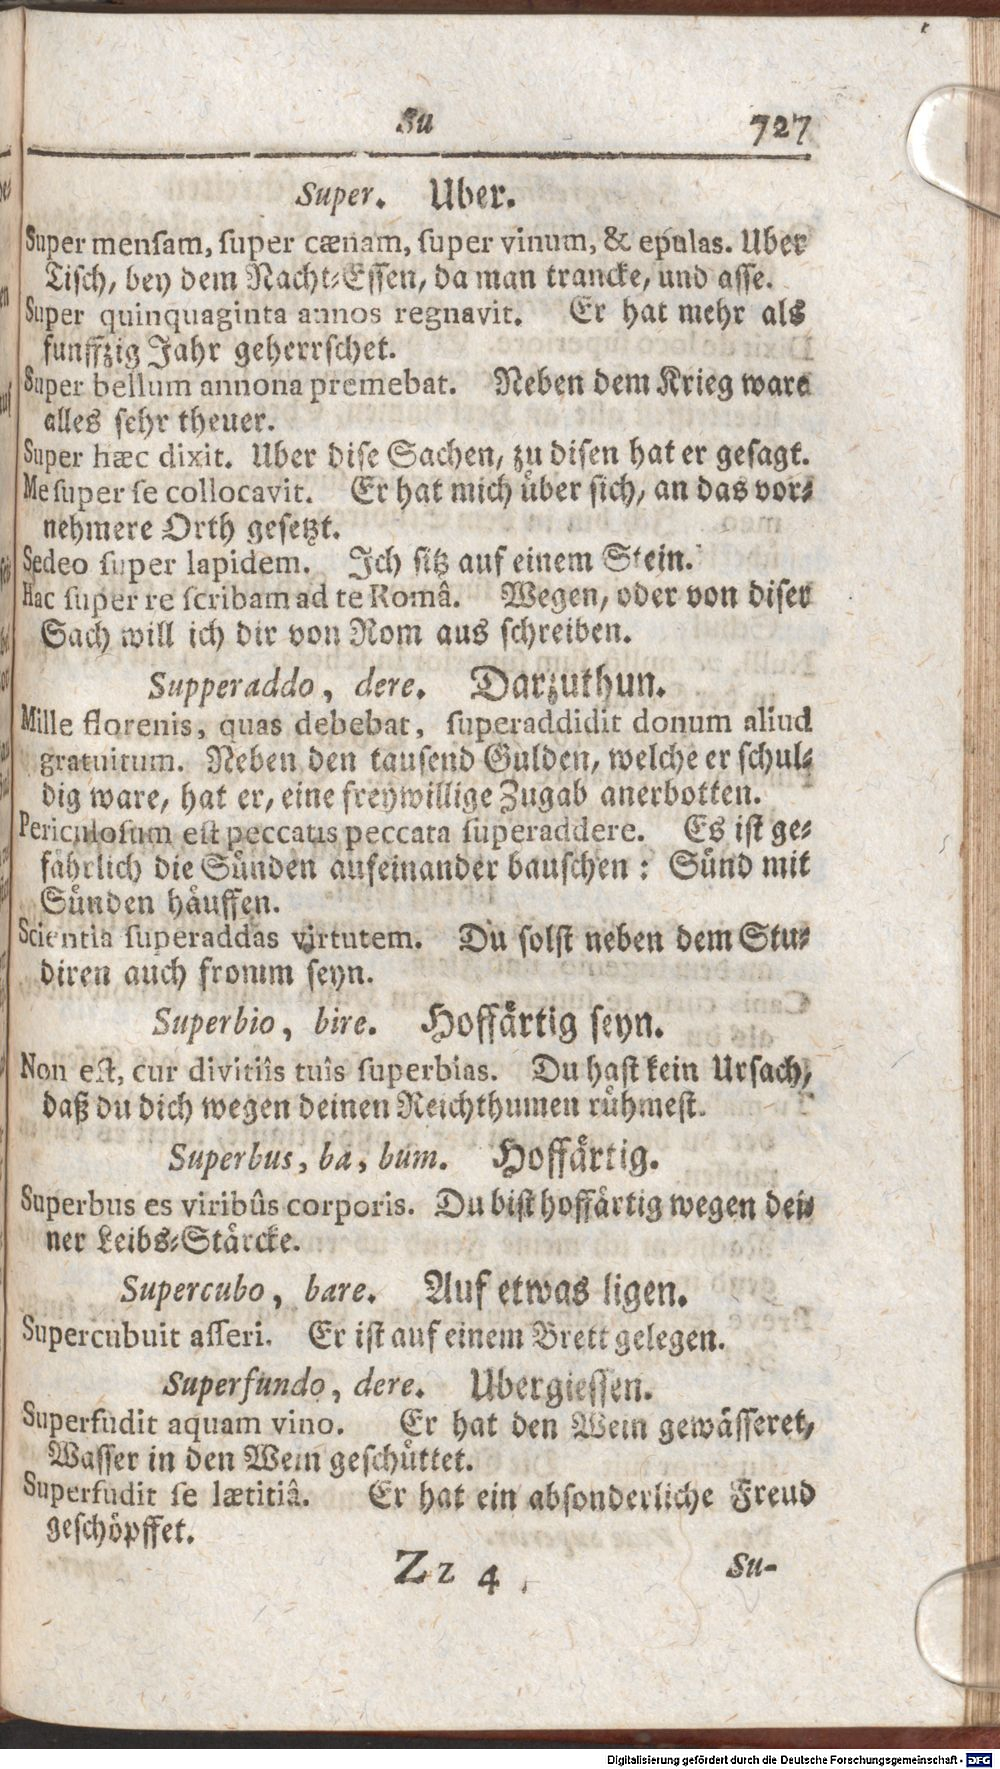 Su 727
Super. Uber.
Super mensam, super cænam, super vinum, & epulas. Uber
Tisch, bey dem Nacht-Essen, da man trancke, und asse.
Super quinquaginta annos regnavit. Er hat mehr als
funffzig Jahr geherrschet.
Super bellum annona premebat. Neben dem Krieg ware
alles sehr theuer.
Super hæc dixit. Uber dise Sachen, zu disen hat er gesagt.
Me super se collocavit. Er hat mich über sich, an das vor-
nehmere Orth gesetzt.
Sedeo super lapidem. Ich sitz auf einem Stein.
Hac super re scribam ad te Româ. Wegen, oder von diser
Sach will ich dir von Rom aus schreiben.
Supperaddo, dere. Darzuthun.
Mille florenis, quas debebat, superaddidit donum aliud
gratuitum. Neben den tausend Gulden, welche er schul-
dig ware, hat er, eine freywillige Zugab anerbotten.
Periculosum est peccatis peccata superaddere. Es ist ge-
fährlich die Sünden aufeinander bauschen: Sünd mit
Sünden häuffen.
Scientia superaddas virtutem. Du solst neben dem Stu-
diren auch fromm seyn.
Superbio, bire. Hoffärtig seyn.
Non est, cur divitiîs tuîs superbias. Du hast kein Ursach,
daß du dich wegen deinen Reichthumen rühmest.
Superbus, ba, bum. Hoffärtig.
Superbus es viribûs corporis. Du bist hoffärtig wegen dei-
ner Leibs-Stärcke.
Supercubo, bare. Auf etwas ligen.
Supercubuit asseri. Er ist auf einem Brett gelegen.
Superfundo, dere. Ubergiessen.
Superfudit aquam vino. Er hat den Wein gewässeret,
Wasser in den Wein geschüttet.
Superfudit se lætitiâ. Er hat ein absonderliche Freud
geschöpffet.
Zz 4 Su-
Digitalisierung gefördert durch die Deutsche Forschungsgemeinschaft - DFG